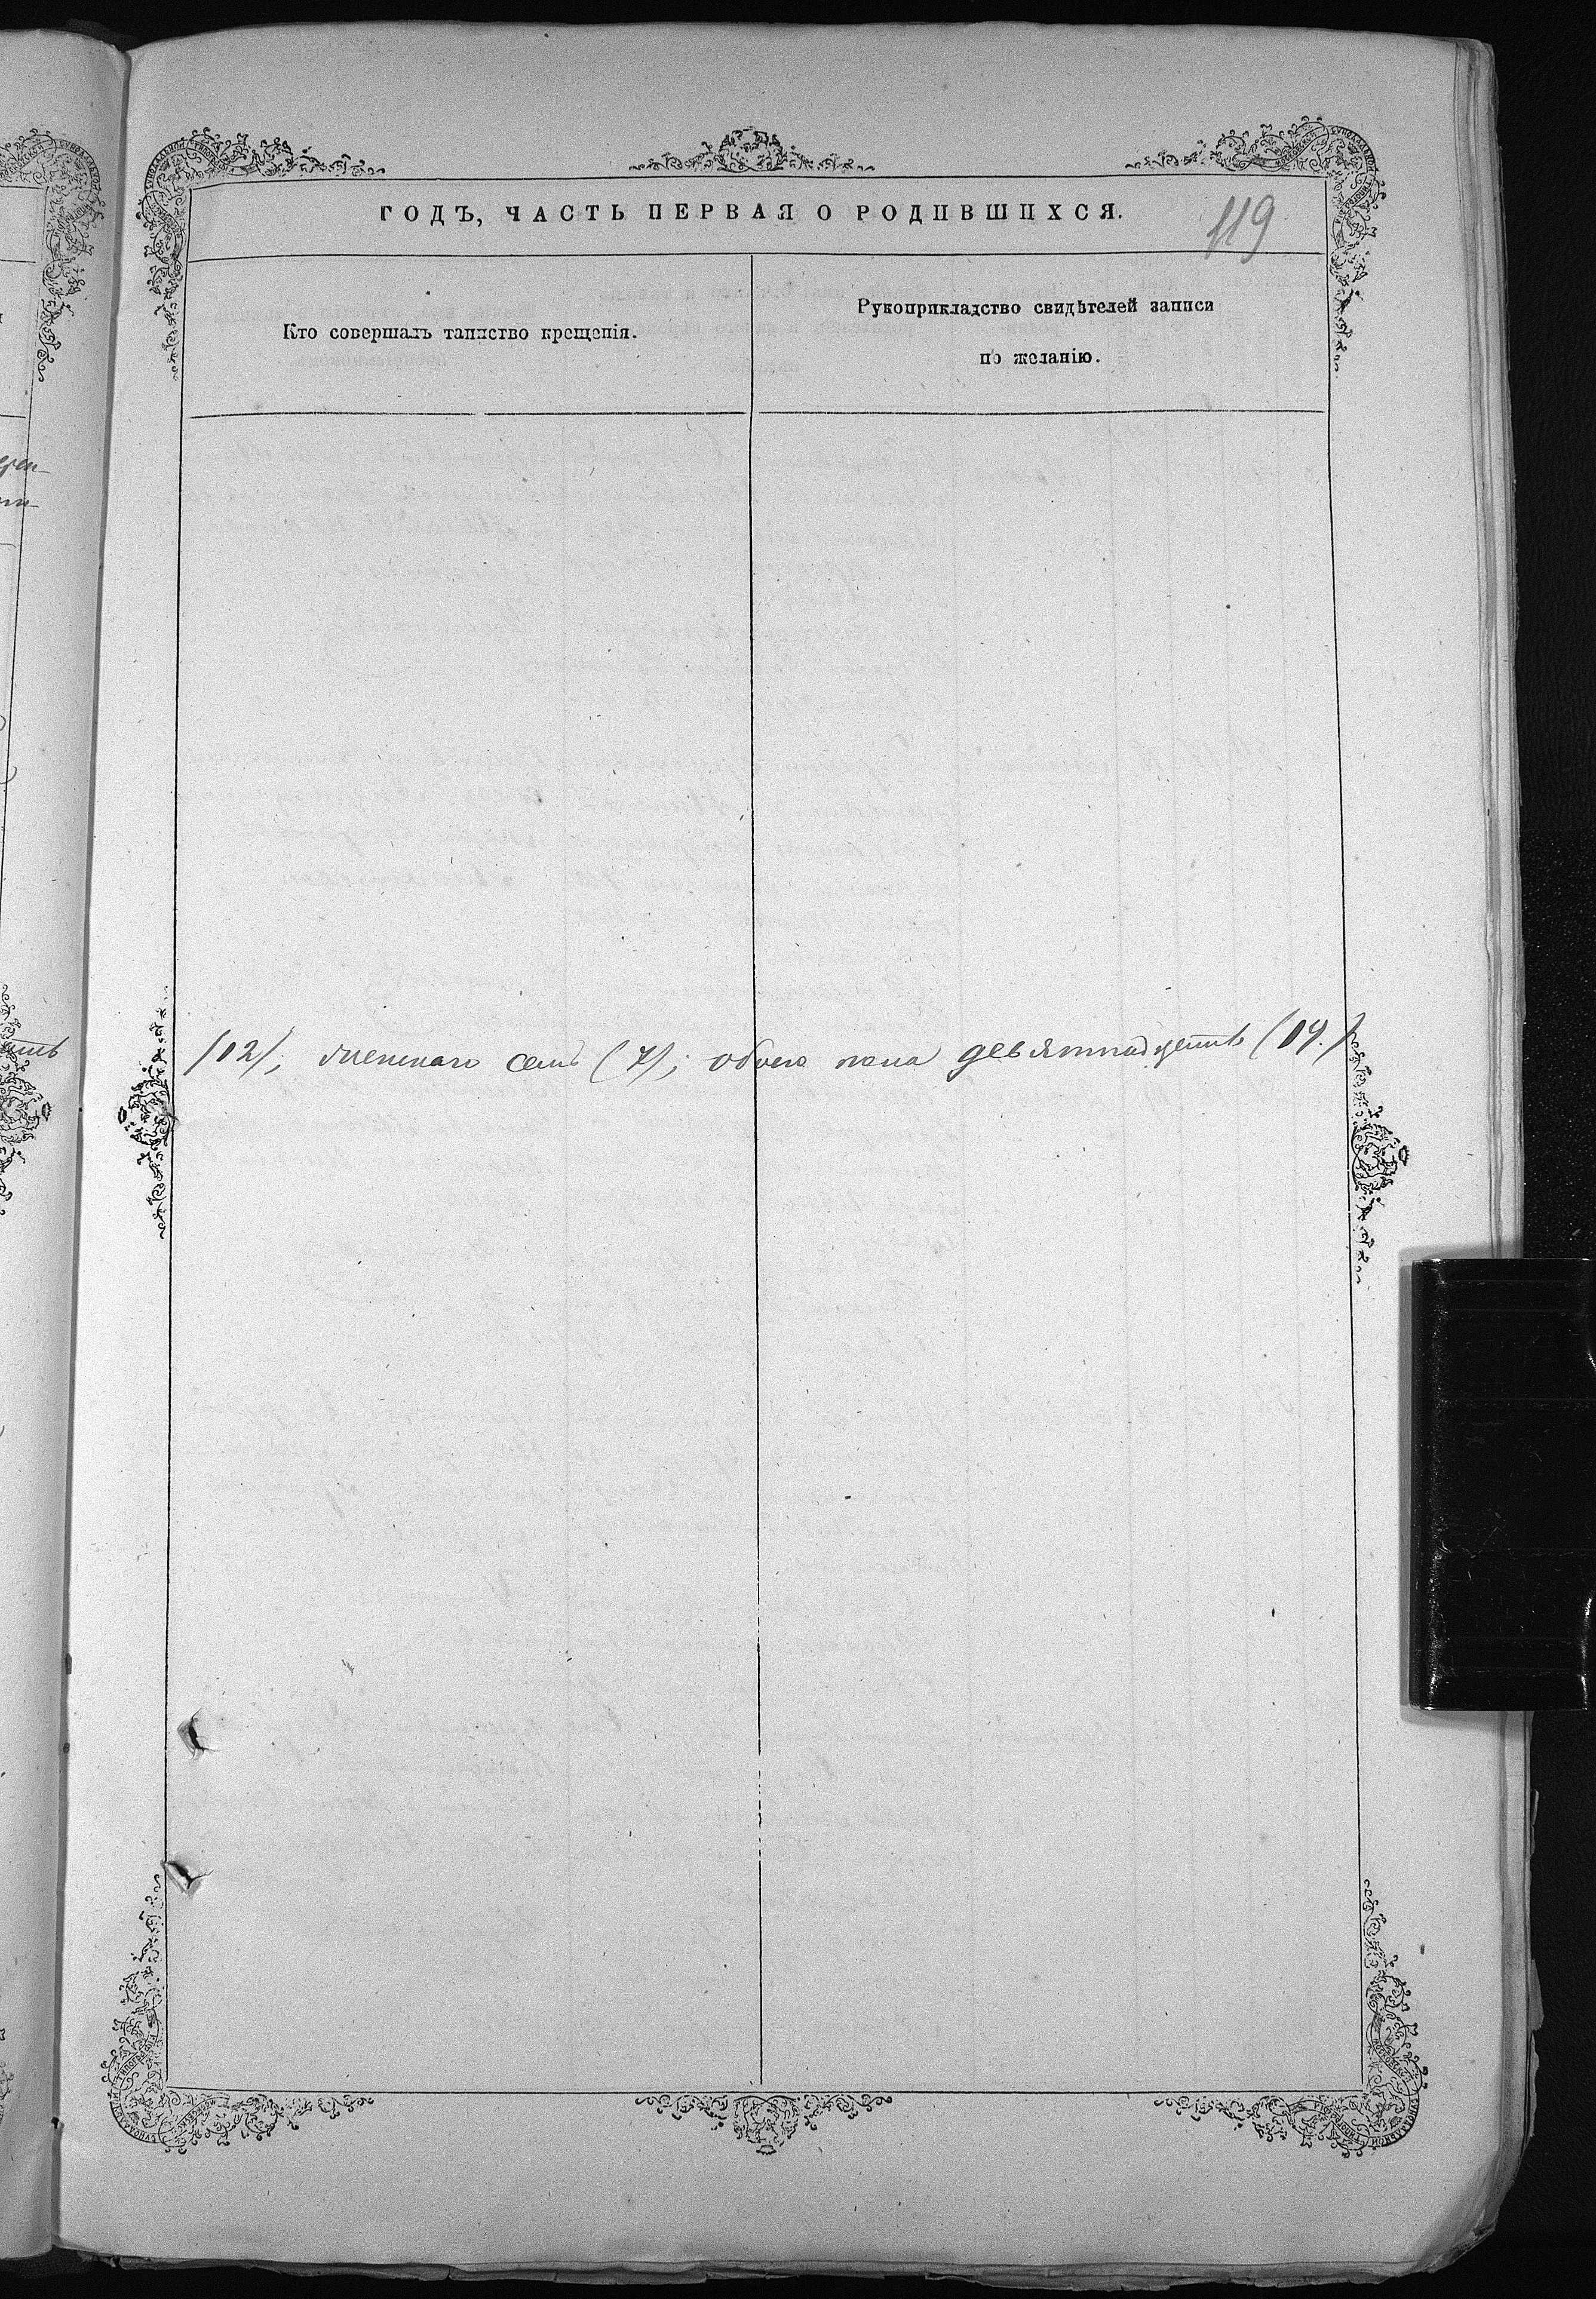 ГОДЪ, ЧАСТЬ ПЕРВАЯ О РОДИВШИХСЯ.
119
Кто совершалъ таинство крещенія.
Рукоприкладство свидѣтелей записи
по желанію.
(12); женскаго семь (7); обоего пола девятнадцать (19.)